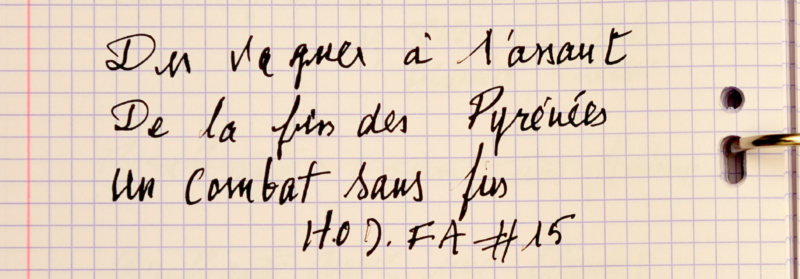 Des vagues à l'assaut
De la fin des Pyrénées
Un combat sans fin
H.O J. FA #15